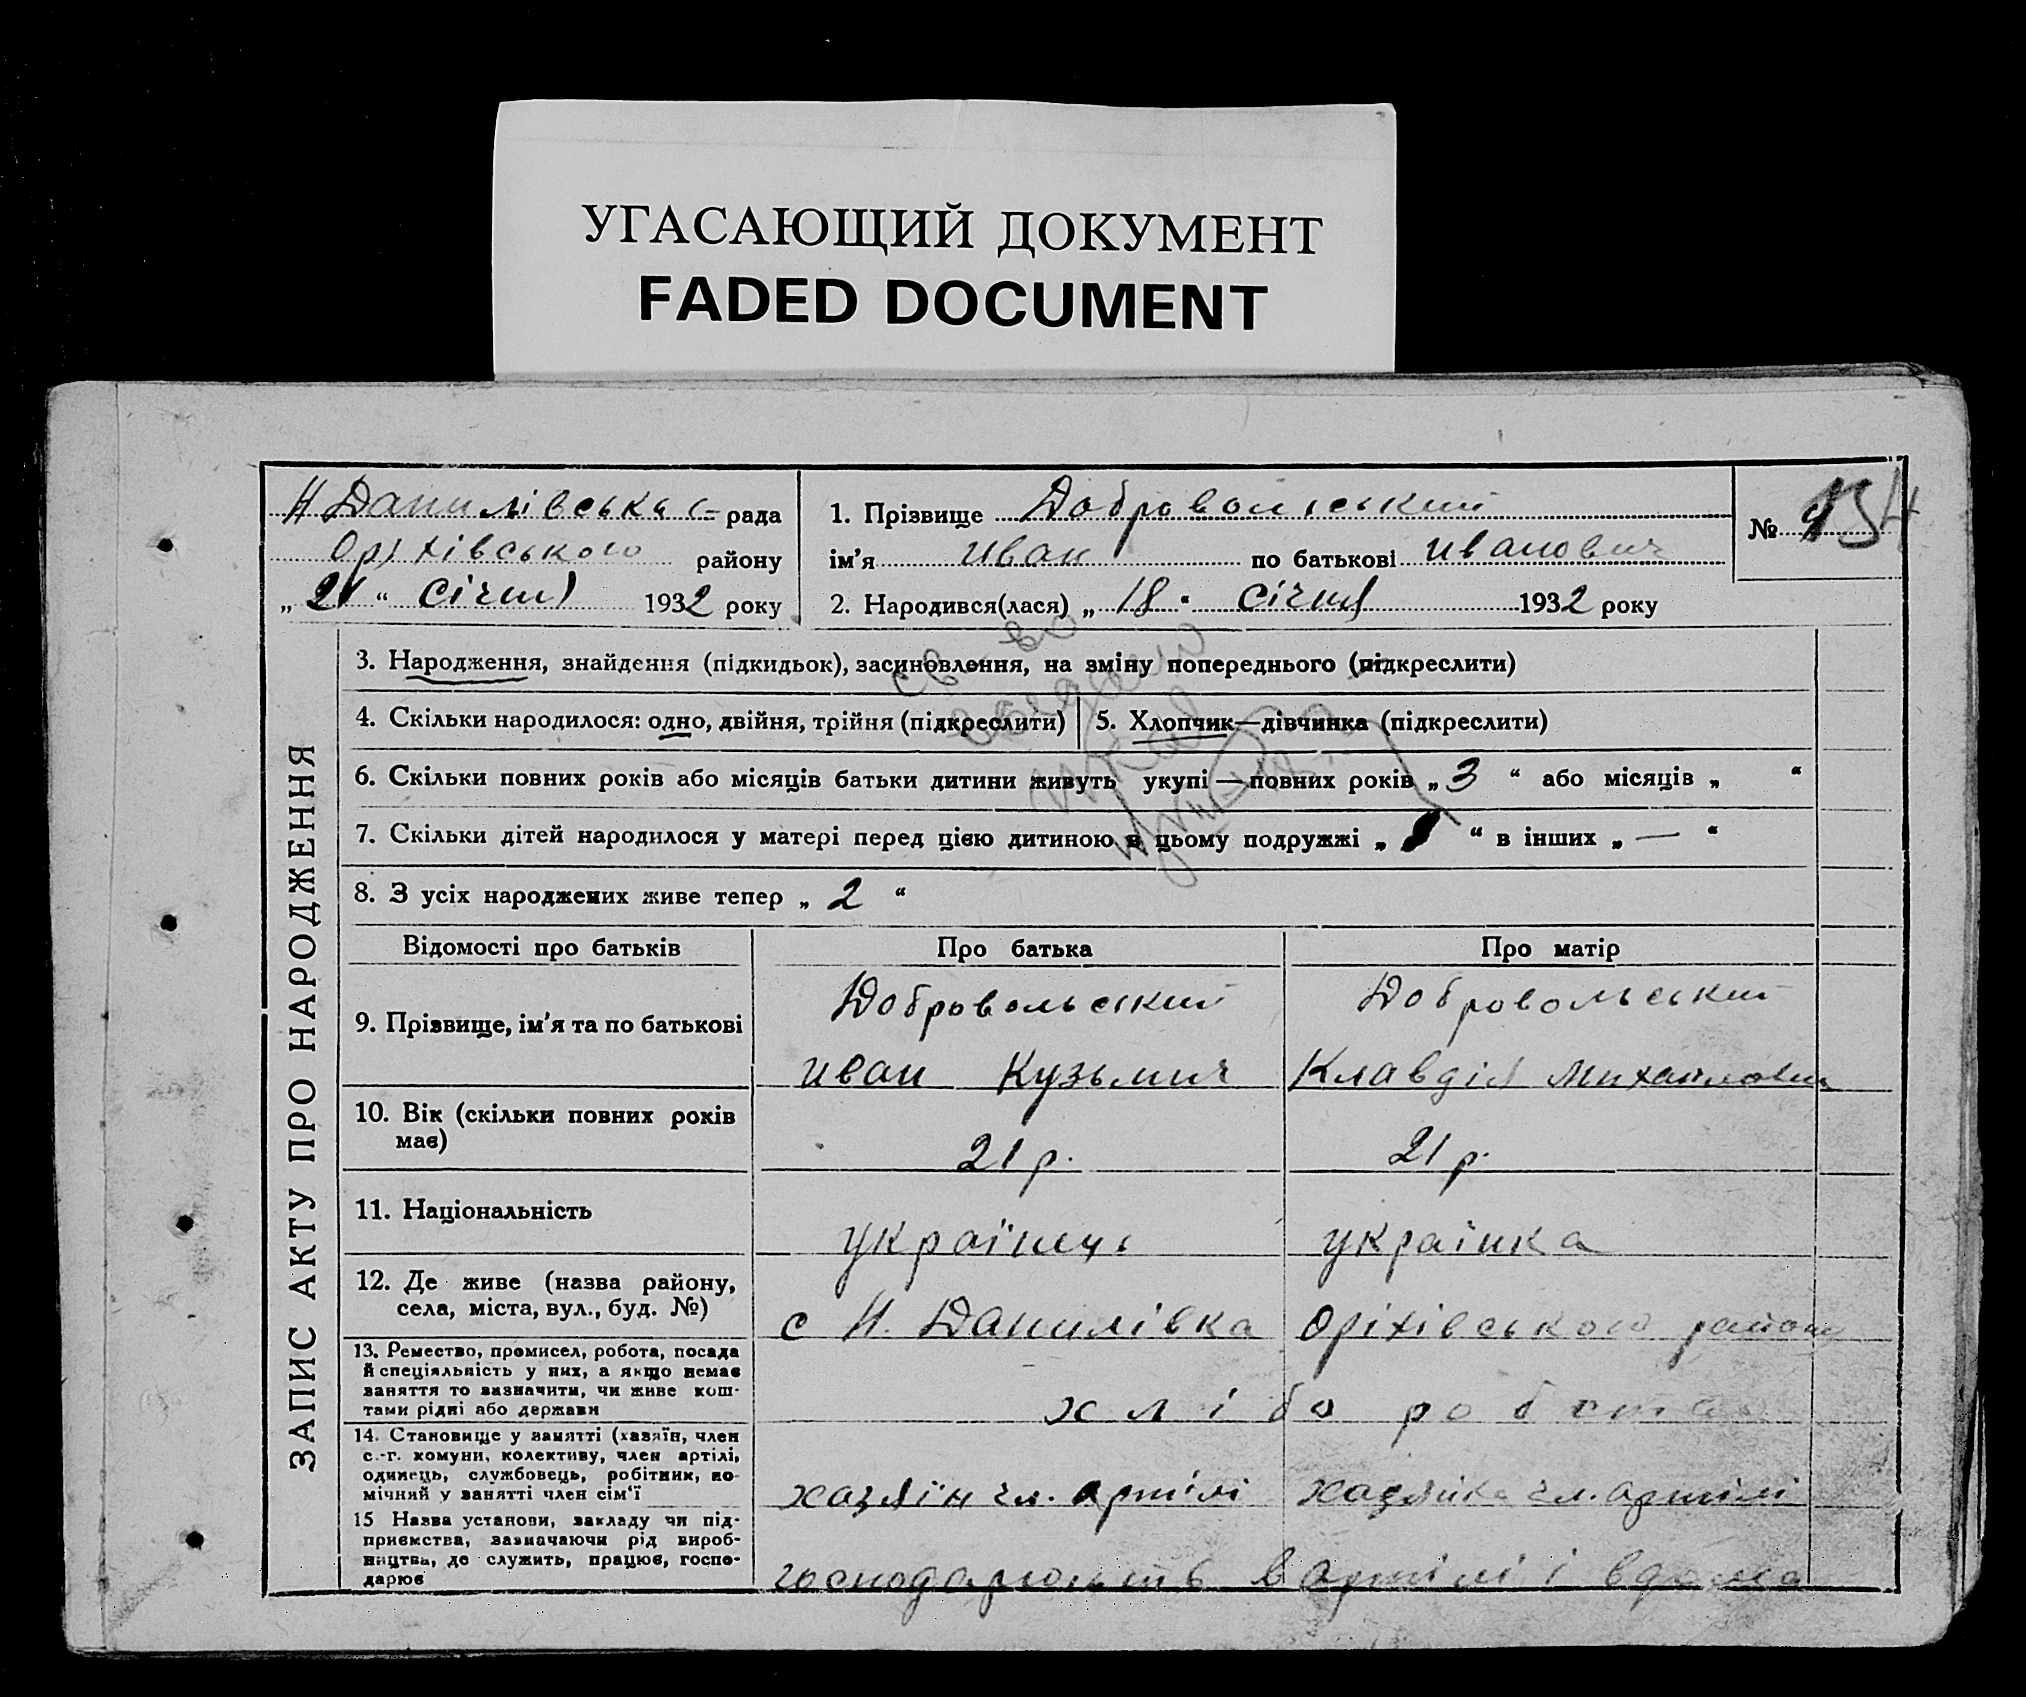 УГАСАЮЩИЙ ДОКУМЕНТ
FADED DOCUMENT
Н Данилівська с- рада
Оріхівського району
„ 21 “ Січня 1932 року
1. Прізвище Добровольський
ім'я Иван по батькові Иванович
2. Народився(лася) „ 18 “ Січня 1932 року
№
ЗАПИС АКТУ ПРО НАРОДЖЕННЯ
3. Народження, знайдення (підкидьок), засиновлення, на зміну попереднього (підкреслити)
4. Скільки народилося: одно, двійня, трійня (підкреслити)
5. Хлопчик—дівчинка (підкреслити)
6. Скільки повних років або місяців батьки дитини живуть укупі—повних років „ 3 “ або місяців „ “
7. Скільки дітей народилося у матері перед цією дитиною в цьому подружжі „ 1 “ в інших „ — “
8. З усіх народжених живе тепер „ 2 “
Відомості про батьків
Про батька
Про матір
9. Прізвище, ім'я та по батькові
Добровольський
Иван Кузьмич
Добровольський
Клавдія Михайловна
10. Вік (скільки повних років
має)
21 р.
21 р.
11. Національність
українець
українка
12. Де живе (назва району,
села, міста, вул., буд. №)
с Н. Данилівка Оріхівського району
13. Ремество, промисел, робота, посада
й спеціяльність у них, а якщо немає
заняття то зазначити, чи живе кош-
тами рідні або держави
хліборобства
14. Становище у занятті (хазяїн, член
с.-г. комуни, колективу, член артілі,
одинець, службовець, робітник, по-
мічний у занятті член сім'ї
хазяїн чл. артілі
хазяйка чл. артілі
15 Назва установи, закладу чи під-
приємства, зазначаючи рід вироб-
ництва, де служить, працює, госпо-
дарює
господарюють в артілі і вдома